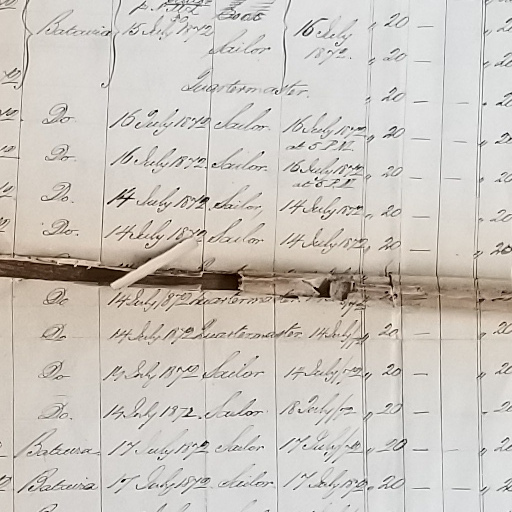 Batavia 15 July 1872 16 July „ 20 —
Sailor 1872. „ 20 —
Quartermaster. „ 20 — —
Do. 16 July 1872 Sailor. 16 July 1872 „ 20 — —
at 5 P.M.
Do. 16 July 1872 Sailor. 16 July 1872 „ 20 — —
at 5 P.M.
Do. 14 July 1872 Sailor, 14 July 1872 „ 20 —
Do. 14 July 1872 Sailor 14 July 1872 „ 20 — „ 20
Do 14 July 1872 Quartermaster
Do 14 July 1872 Quartermaster 14 July „ 20 — „ 20
Do 14 July 1872 Sailor 14 July /72 „ 20 — — „ 20
Do. 14 July 1872. Sailor 18 July /72 „ 20 — „ 20
Batavia 17 July 1872 Sailor 17 July /72 „ 20 — — „ 20
Batavia 17 July 1872 Sailor 17 July 1872 „ 20 — — „ 20